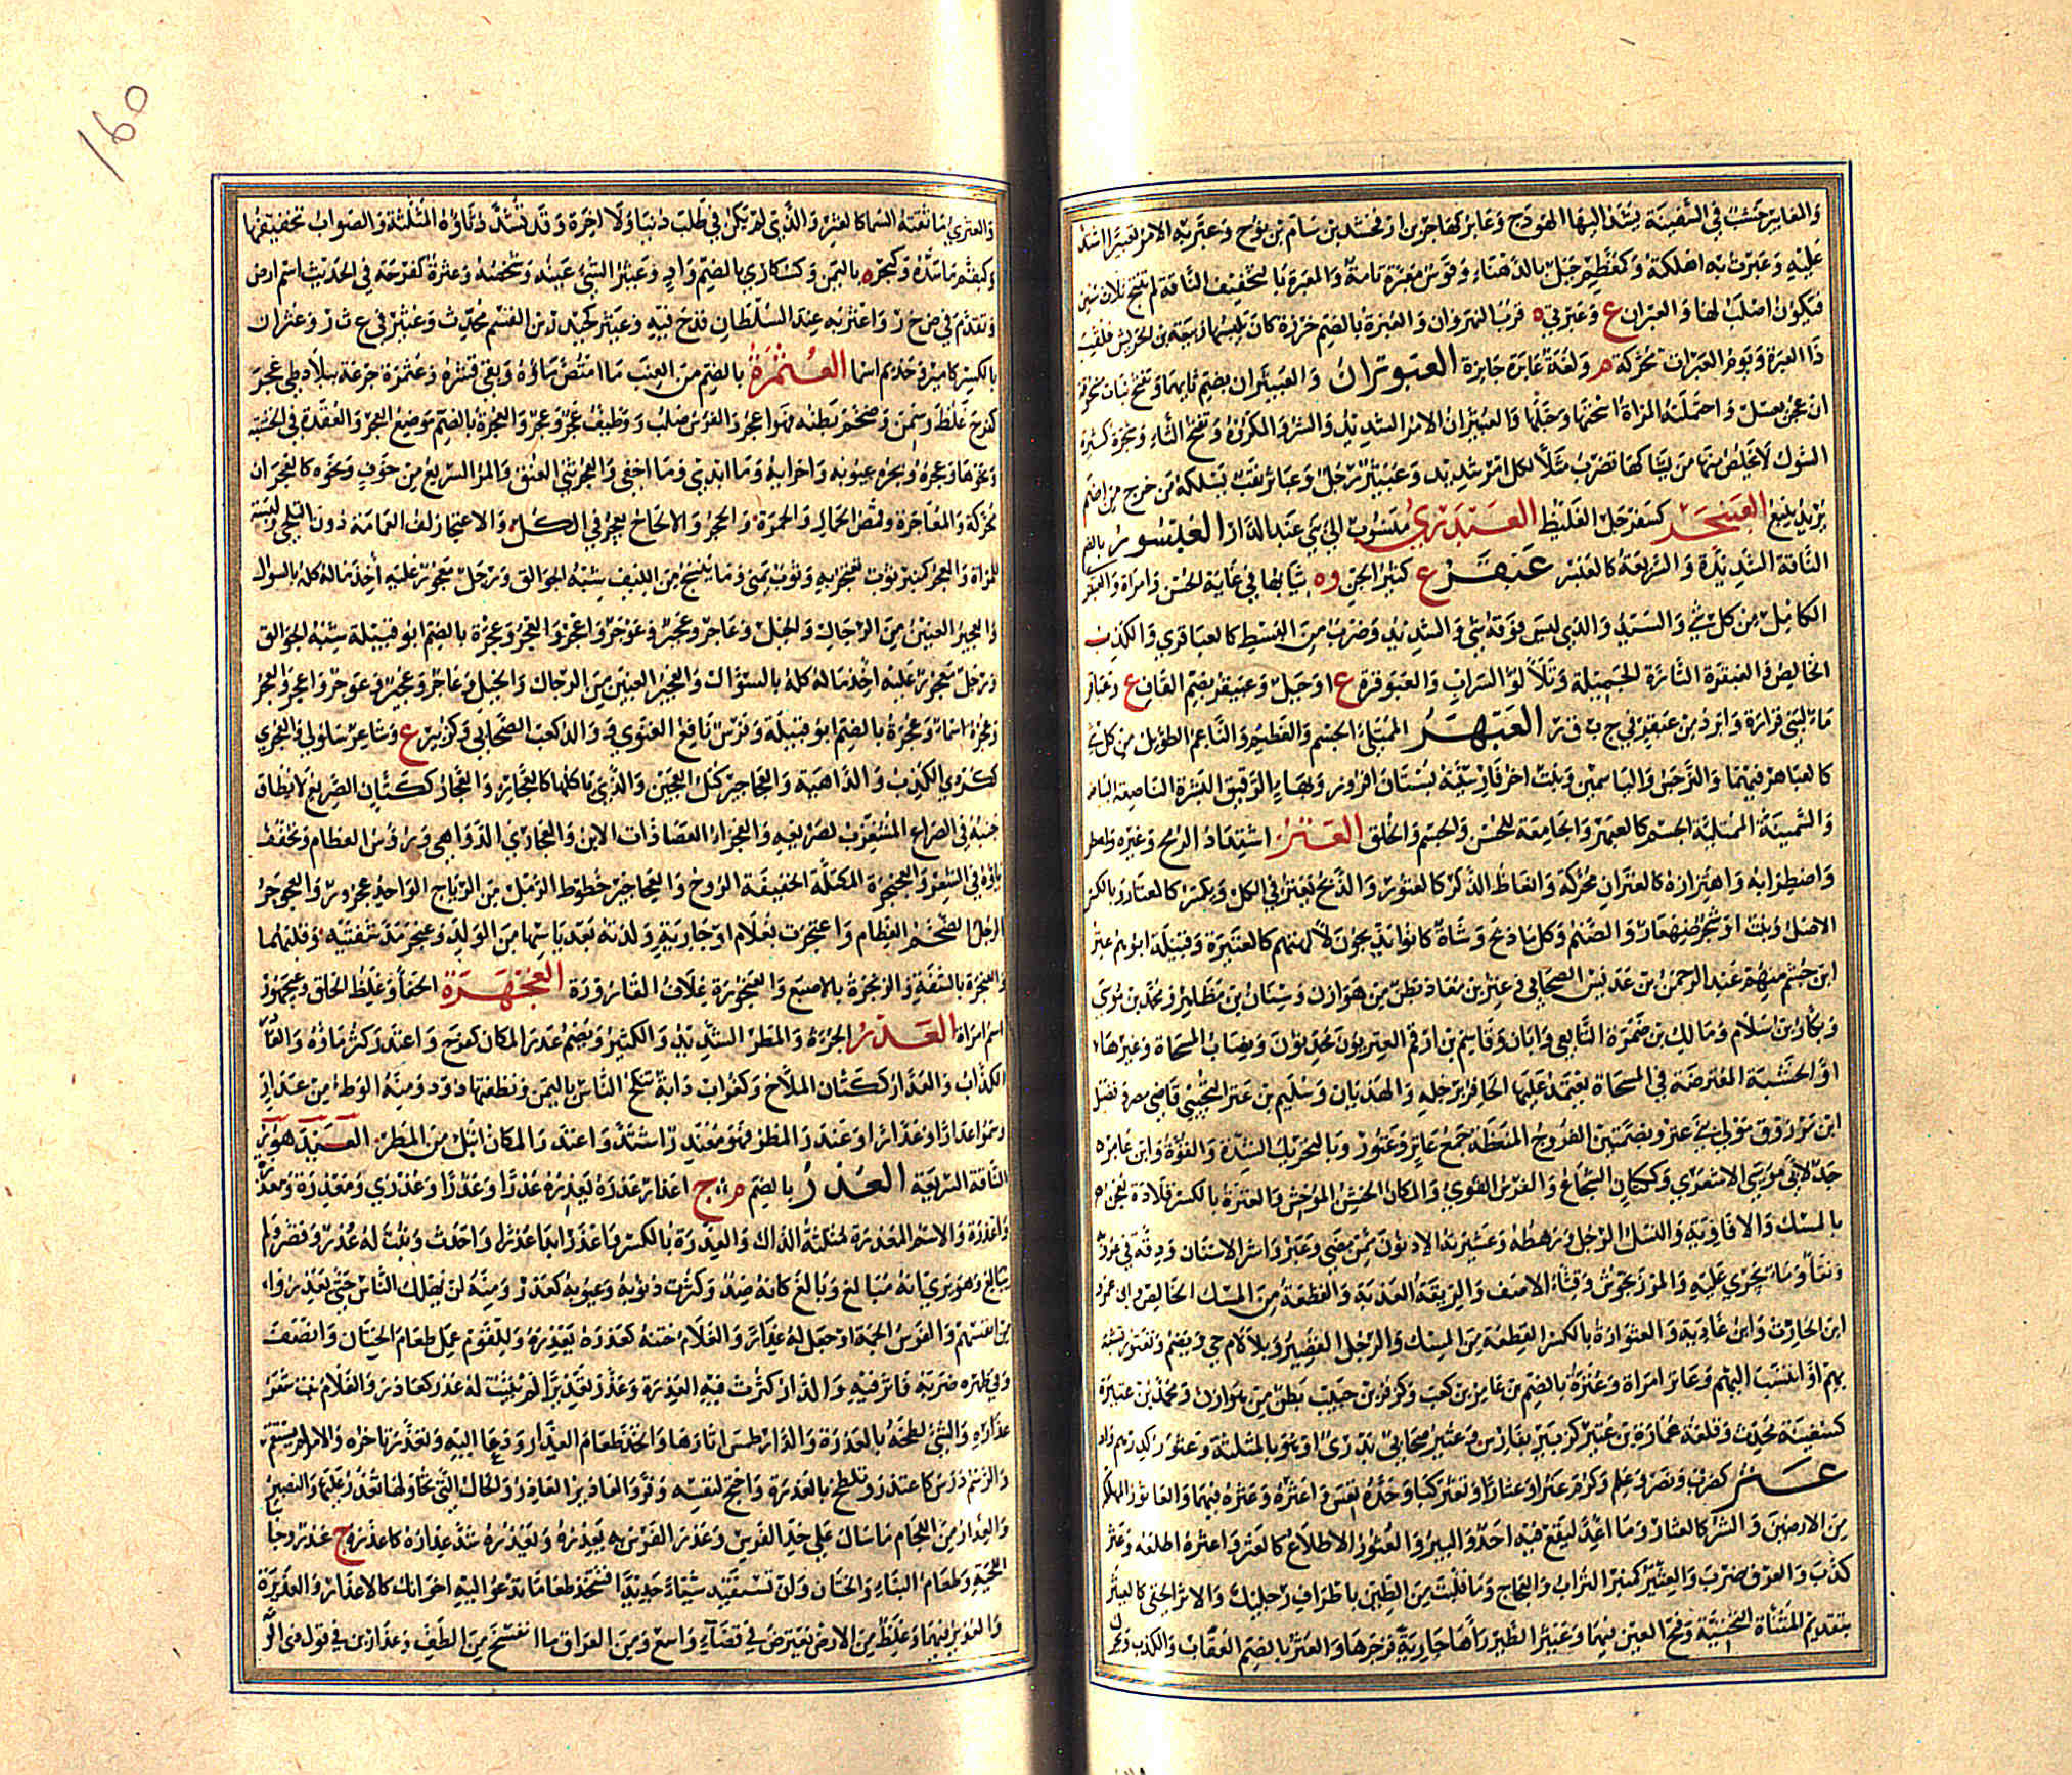 والعابر خشب في السفينة يشد اليها الهودج وعابر كهاجر بن ارفخشد بن سام بن نوح وعبر به الامر تعبيرا اشتد
عليه وعبرت به اهلكته وكمعظم جبل بالدهناء وقوس معبرة تامة والمعبرة بالتخفيف الناقة لم تنتج ثلاث سنين
فيكون اصلب لها والعبران ع وعبرتي ه قرب النهروان والعبرة بالضم خرزة كان يلبسها ربيعة بن الحريش فلقب
ذا العبرة ويوم العبرات محركة م ولغة عابرة جايزة العبوثران والعبيثران بضم ثايهما وتفتح نبات
ان عجن بعسل واحتملته المراة اسخنها وحبلها والعبيثران الامر الشديد والشر والمكروه وتفتح الثاء وشجرة كثيرة
الشوك لا يخلص منها من يشاكها تضرب مثلا لكل امر شديد وعبيثر رجل وعباثر نقب يسلكه من خرج من اضم
يريد ينبع العبنجر كسفرجل الغليظ العبدري منسوب الي بني عبد الدار العبسور بالضم
الناقة الشديدة والسريعة كالعبسر عبقر ع كثير الجن وه ثيابها في غاية الحسن وامراة والعبقري
الكامل من كل شي والسيد والذي ليس فوقه شي والشديد وضرب من البسط كالعباقري والكذب
الخالص والعبقرة التارة الجميلة وتلالو السراب والعبوقرة ع او جبل وعبيقر بضم القاف ع وعباقر
ماء لبني فزارة وابرد من عبقر في ح ب ق ر العبهر الممتلئ الجسم والعظيم والناعم الطويل من كل شي
كالعباهر فيهما والنرجس والياسمين ونبت اخر فارسيته بستان افروز وبهاء الرقيق البشرة الناصعة البياض
والسمينة الممتلية الجسم كالعبهر والجامعة للحسن والجسم والخلق العتر اشتداد الرمح وغيره
واضطرابه واهتزازه كالعتران محركة وانعاظ الذكر كالعتور والذبح يعتر في الكل ويكسر كالعتار وبالكسر
الاصل ونبت او شجر صغار والصنم وكل ما ذبح وشاة كانوا يذبحون لالهتهم كالعتيرة وقبيلة ابوهم عتر
ابن جشم منهم عبد الرحمن بن عديس الصحابي وعتر بن معاذ بطن من هوازن وسنان بن مظاهر ومحمد بن موسى
وبكار بن سلام ومالك بن ضمرة التابعي وابان وقاسم بن ارقم العتريون محدثون ونصاب المسحاة وغيرها
او الخشبة المعترضة في المسحاة يعتمد عليها الحافر برجله والهذيان وسليم بن عتر التجيبي قاضي مصر
ابن مرزوق مولي بني عتر وبضمتين الفروج المنعظة جمع عاتر وعتور وبالتحريك الشدة والقوة وابن عامر
جد لابي موسى الاشعري وككتان الشجاع والفرس القوي والمكان الخشن الموحش والعترة بالكسر قلادة تعجن
بالمسك والافاويه والنسل الرجل ورهطه وعشيرته الادنون ممن مضي وغبر واشر الاسنان ودقة في غروبها
ونقاء وماء يجري عليه والمرزنجوش وقثاء الاصف والريقة العذبة والقطعة من المسك الخالص
ابن الحارث وابن عادية والعتوارة بالكسر القطعة من المسك والرجل القصير وبلا لام حي ويضم وتعتور تشبه
بهم او انتسب اليهم وعاتر امراة وعترة بالضم بن عامر بن كعب وكزفر بن حبيب بطن من هوازن ومحمد بن عتيرة
كسفينة محدث وقلعة عمارة بن عتير كزبير بفارس وعتير صحابي بدري او هو بالمثلثة وعتور كدرهم واد
عثر كضرب ونصر وعلم وكرم عثرا وعثارا وتعثر كبا وجده تعس واعثره وعثره فيهما والعاثور المهلكة
من الارضين والشر كالعثار وما اعد ليقع فيه احد والبير والعثور الاطلاع كالعثر واعثره اطلعه وعثر
كذب والعرق ضرب والعثير كمنبر التراب والعجاج وما قلبت من الطين باطراف رجليك والاثر الخفي كالعيثر
بتقديم المثناة التحتية وفتح العين فيهما وعيثر الطير راها جارية فزجرها والعثر بالضم العقاب والكذب
160
والعثري ما سقته السماء كالعثر والذي لم يكن في طلب دنيا ولا اخرة وقد تشدد ثاؤه المثلثة والصواب تخفيفها
وكبقم ماسدة وكبحر ه باليمن وكسكارى بالضم واد وعيثر الشي عينه وشخصه وعثرة كفرحة في الحديث اسم ارض
وتقدم في ص خ ر واعثر به عند السلطان قدح فيه وعبثر كجندل بن القسم محدث وعنثر في ع ث ر وعثران
بالكسر كامير وحذيم اسما العثمرة بالضم من العنب ما امتص ماؤه وبقي قشره وعثمرة جرعة ببلاد طي عجر
كفرح غلظ وسمن وضخم بطنه فهو اعجر والفرس صلب ووظيف عجر وعجر والعجرة بالضم موضع العجر والعقدة في الخشبة
ونحوها وعجره وبجره عيوبه واحزانه وما ابدي وما اخفي والعجر ثني العنق والمر السريع من خوف ونحوه كالعجران
محركة والمعاجرة وقمص الحمار والحمرة والحجر والالحاح يعجر في الكل والاعتجار لف العمامة دون التلحي ولبسة
للمراة والمعجر كمنبر ثوب تعتجر به وثوب يمني وما ينسج من الليف شبه الجوالق ورجل معجور عليه اخذ ماله كله بالسوال
والعجير العنين من الرجال والخيل وعاجر وعجير وعوجر واعجر والعجر وعجرة بالضم ابو قبيلة شبه الجوالق
ورجل معجور عليه اخذ ماله كله بالسؤال والعجير العنين من الرجال والخيل وعاجر وعجير وعوجر واعجر والعجر
وعجرة اسماء وعجرة بالضم ابو قبيلة وفرس نافع الغنوي ووالد كعب الصحابي وكزبير ع وشاعر سلولي والعجري
ككردي الكذب والداهية والعجاجير كتل العجين والذي ياكلها كالعجاجر والعجار ككتان الصريع لا يطاق
جنبه في الصراع المشغزب لصريعه والعجراء العصا ذات الابن والعجاري الدواهي ورؤس العظام وتخفف
ياؤه في الشعر والعجنجرة المكتلة الخفيفة الروح والعجاجير خطوط الرمل من الرياح الواحد عجرور والعجوجر
الرجل الضخم العظام واعتجرت بغلام او جارية ولدته بعد ياسها من الولد وعنجر مد شفتيه وقلبهما
والعنجرة بالشفة والزنجرة بالاصبع والعنجورة غلاف القارورة العجهرة الجفاء وغلظ الخلق وعيجهور
اسم امراة العدر الجرءة والمطر الشديد والكثير ويضم عدر المكان كفرح واعتدر كثر ماؤه والعاد
الكذاب والعدار ككتان الملاح وكغراب دابة تنكح الناس باليمن ونطفتها دود ومنه الوط من عدار
وسموا عدارا وعدارا وعندر المطر فهو معندر اشتد واعتدر المكان ابتل من المطر العيدهور
الناقة السريعة العذر بالضم م ج اعذار عذره يعذره عذرا وعذرا وعذري ومعذرة ومعذرة
واعذره والاسم المعذرة مثلثة الذال والعذرة بالكسر واعذر ابداء عذرا واحدث وثبت له عذر وقصر ولم
يبالغ وهو يري انه مبالغ وبالغ كانه ضد وكثرت ذنوبه وعيوبه كعذر ومنه لن يهلك الناس حتي يعذروا
من انفسهم والفرس الجمه او جعل له عذارا والغلام ختنه كعذره يعذره وللقوم عمل طعام الختان وانصف
وفي ظهره ضربه فاثر فيه والدار كثرت فيه العذرة وعذر تعذيرا لم يثبت له عذر كعاذر والغلام نبت شعر
عذاره والشي لطخه بالعذرة والدار طمس اثارها واتخذ طعام العذار ودعا اليه وتعذر تاخر والامر لم يستقم
والرسم درس كاعتذر وتلطخ بالعذرة واحتج لنفسه وفر والعاذير العاذر والحال التي تحاولها تعذر عليها والنصير
والعذار من اللجام ما سال على خد الفرس وعذر الفرس به يعذره ويعذره شد عذاره كاعذره ج عذر وجانبا
اللحية وطعام البناء والختان وان تستفيد شياء جديدا فتتخذ طعاما تدعو اليه اخوانك كالاعذار والعذيرة
والعذير فيهما وغلظ من الارض يعترض في فضاء واسع ومن العراق ما انفسح عن الطف وعذارين في قول ذي الر